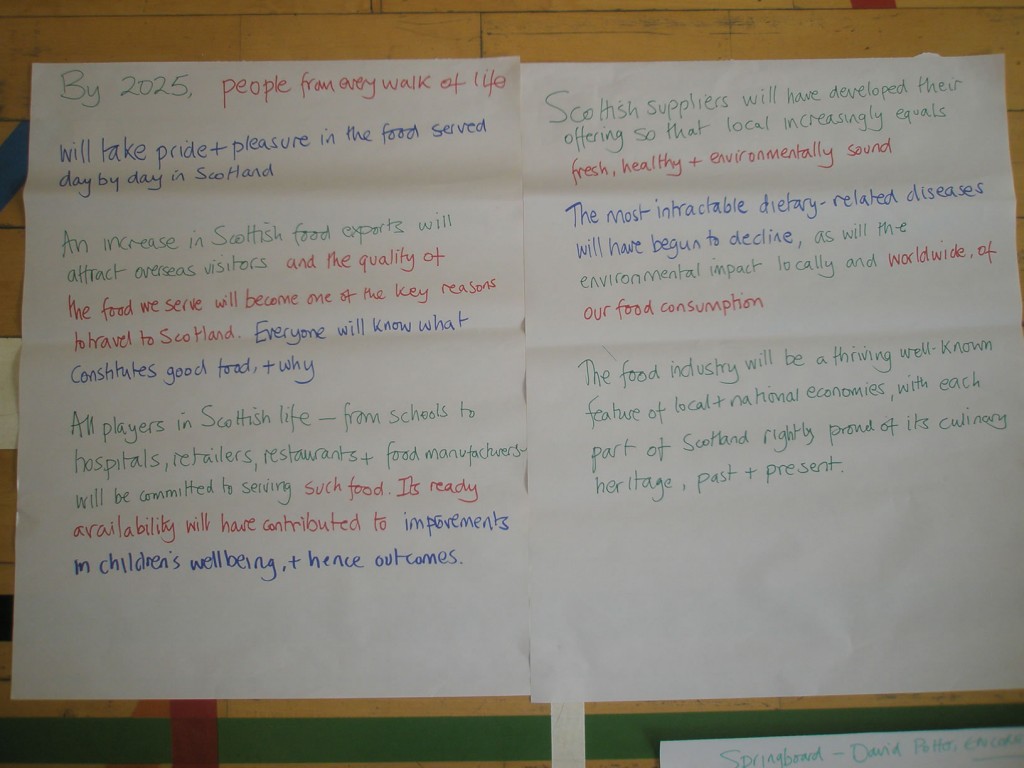 By 2025, people from every walk of life
will take pride + pleasure in the food served
day by day in Scotland
An increase in Scottish food exports will
attract overseas visitors and the quality of
the food we serve will become one of the key reasons
to travel to Scotland. Everyone will know what
constitutes good food, + why
All players in Scottish life – from schools to
hospitals, retailers, restaurants + food manufacturers –
will be committed to serving such food. Its ready
availability will have contributed to improvements
in children's wellbeing, + hence outcomes.
Scottish suppliers will have developed their
offering so that local increasingly equals
fresh, healthy + environmentally sound
The most intractable dietary-related diseases
will have begun to decline, as will the
environmental impact locally and worldwide, of
our food consumption
The food industry will be a thriving well-known
feature of local + national economies, with each
part of Scotland rightly proud of its culinary
heritage, past + present.
Springboard – David